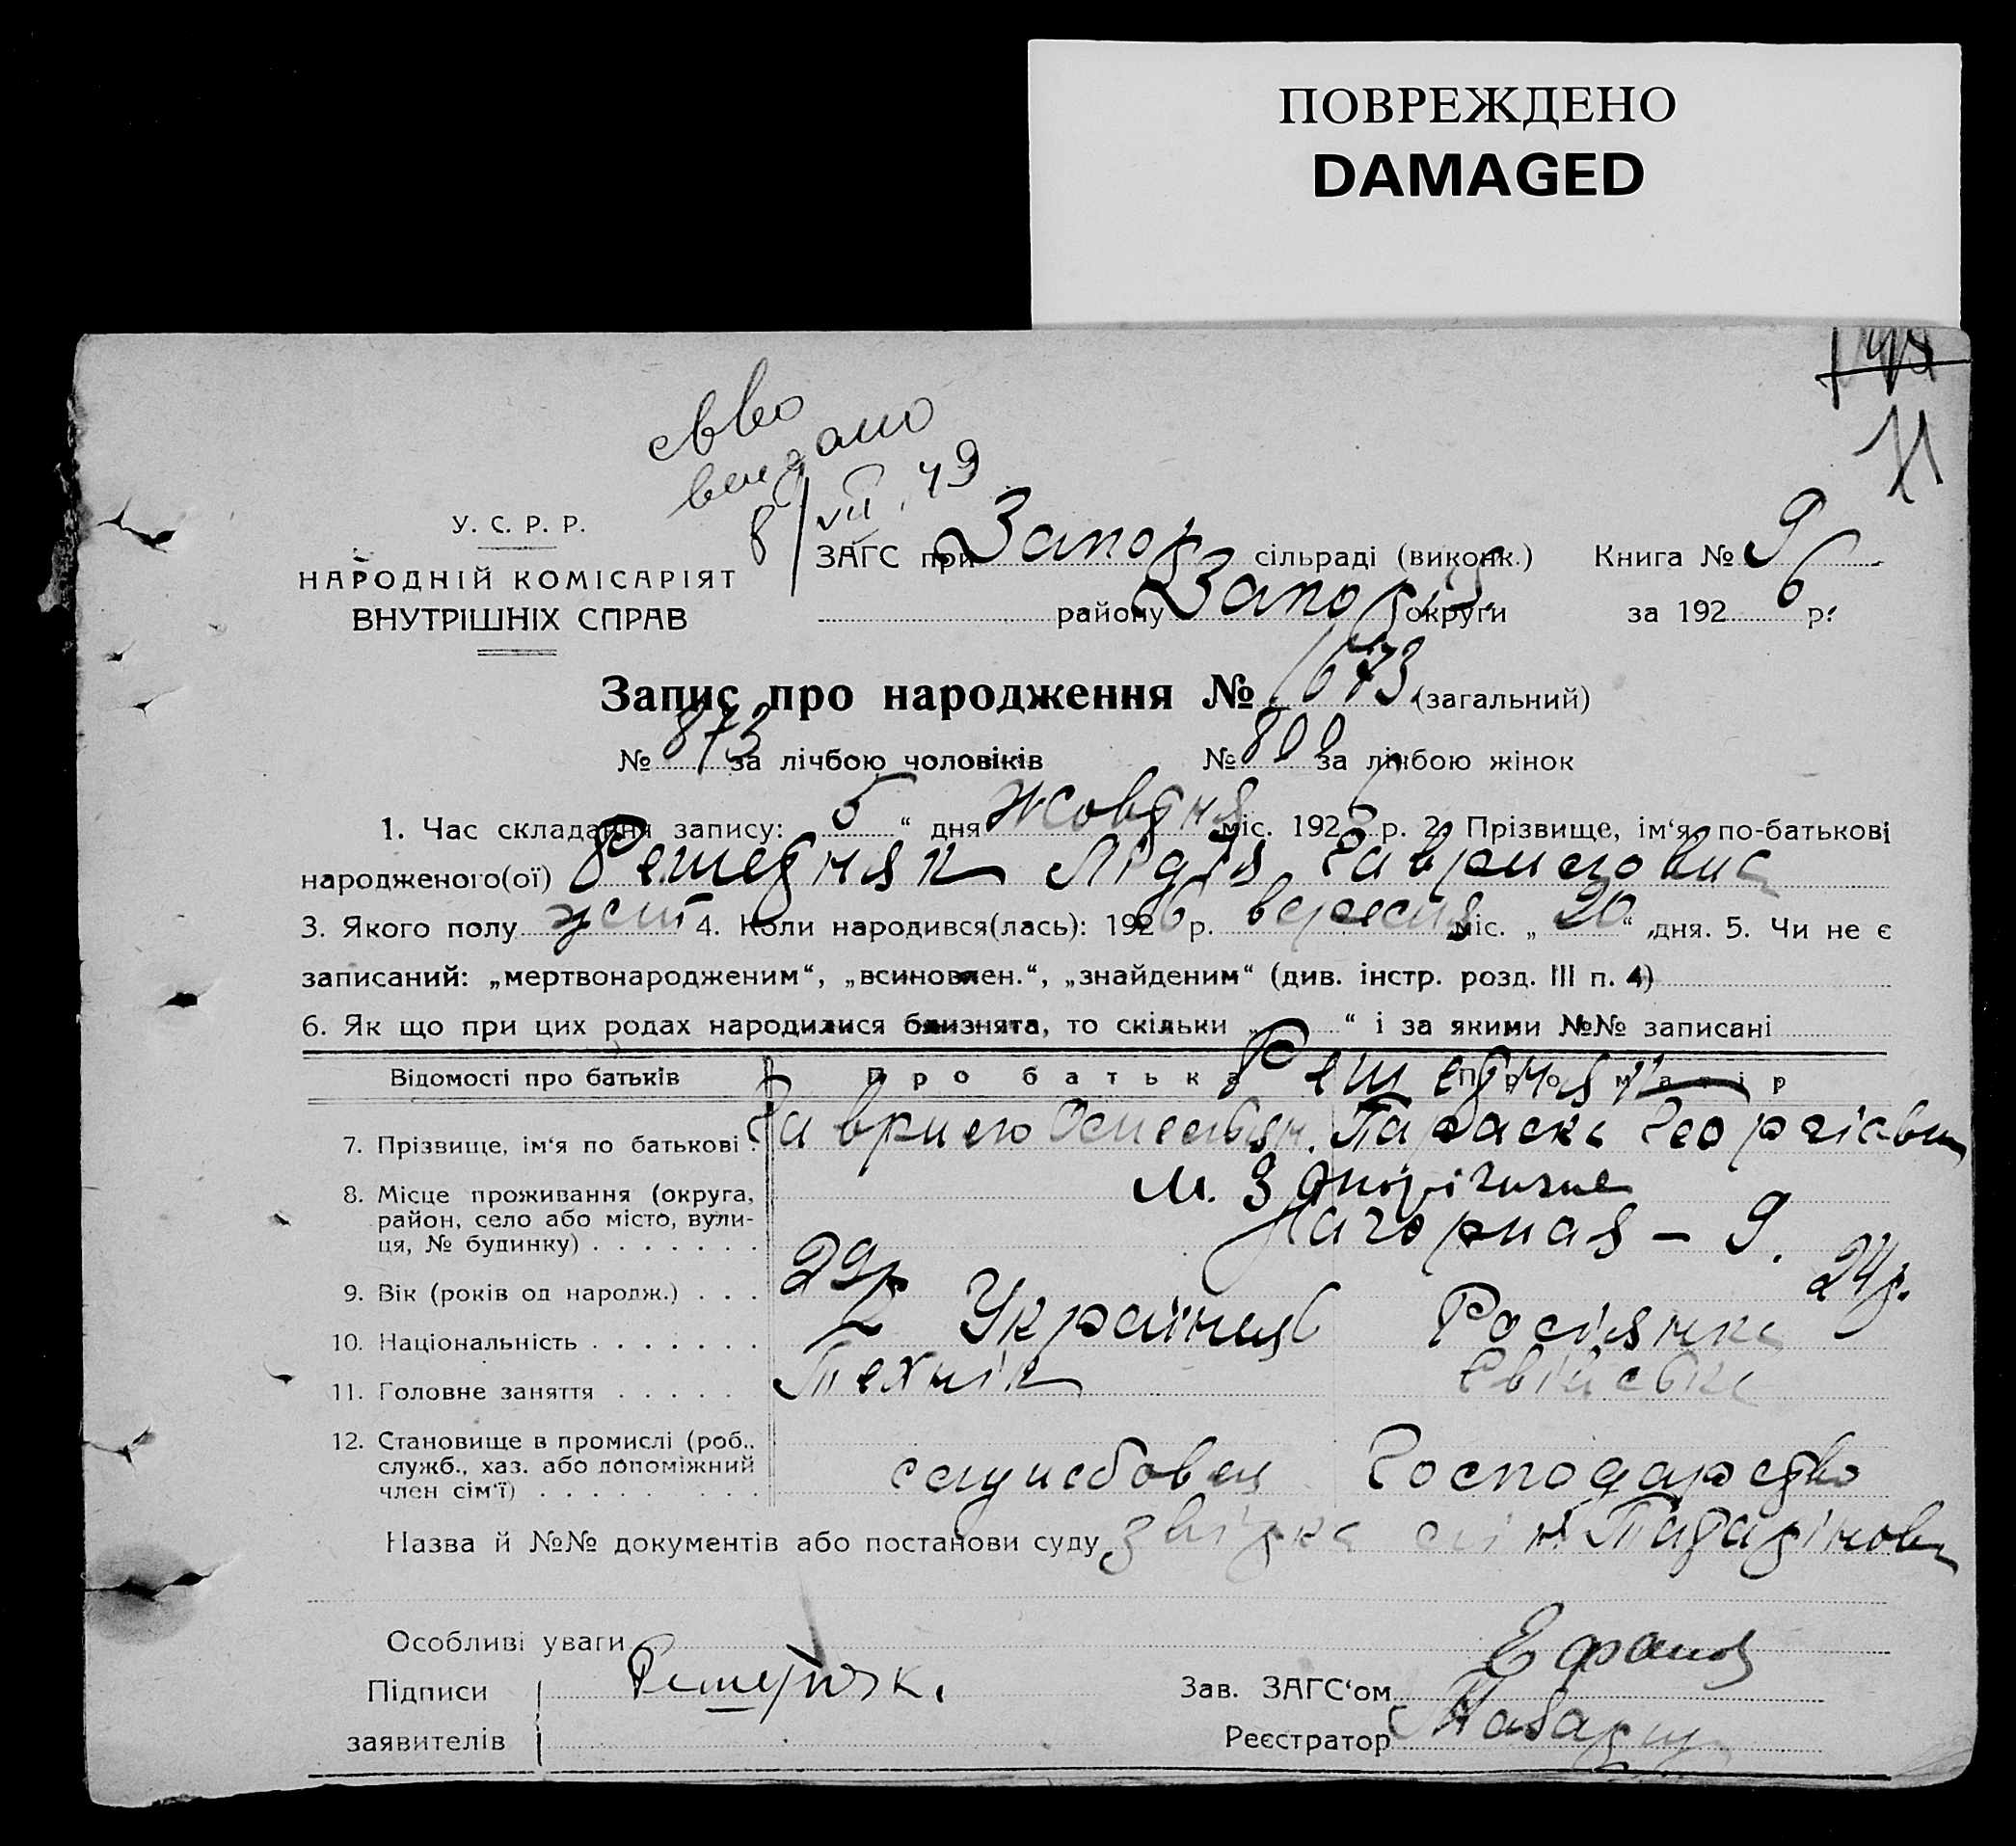 ПОВРЕЖДЕНО
DAMAGED
11
8/VII.49
У. С. Р. Р.
НАРОДНІЙ КОМІСАРІЯТ
ВНУТРІШНІХ СПРАВ
ЗАГС при Запор сільраді (виконк.) Книга № 9
району Запоріз округи за 1926 р.
Запис про народження № 1673 (загальний)
№ 873 за лічбою чоловіків № 800 за лічбою жінок
1. Час складання запису: 5 “ дня жовдня міс. 1926 р. 2. Прізвище, ім‘я, по-батькові
народженого(ої) Решедняк Лідія Гаврилович
3. Якого полу жіт 4. Коли народився(лась): 1926 р. вересня міс. „ 20 “ дня. 5. Чи не є
записаний: „мертвонародженим“, „всиновлен.“, „знайденим“ (див. інстр. розд. III п. 4)
6. Як що при цих родах народилися близнята, то скільки „ “ і за якими №№ записані
Відомості про батьків Про батька Про матір
Решедняк
7. Прізвище, ім‘я по батькові Гаврило Параска Георгієвн
8. Місце проживання (округа, район, село або місто, вулиця, № будинку) м. Запоріжжє
Нагорная – 9.
9. Вік (років од народж.) 29р 24р.
10. Національність Українец Росіянка
11. Головне заняття Технік
12. Становище в промислі (роб., служб., хаз. або допоміжний член сім‘ї) службовец Господарство
Назва й №№ документів або постанови суду
Особливі уваги
Підписи Решедняк.
заявителів
Зав. ЗАГС‘ом Ефанов
Реєстратор